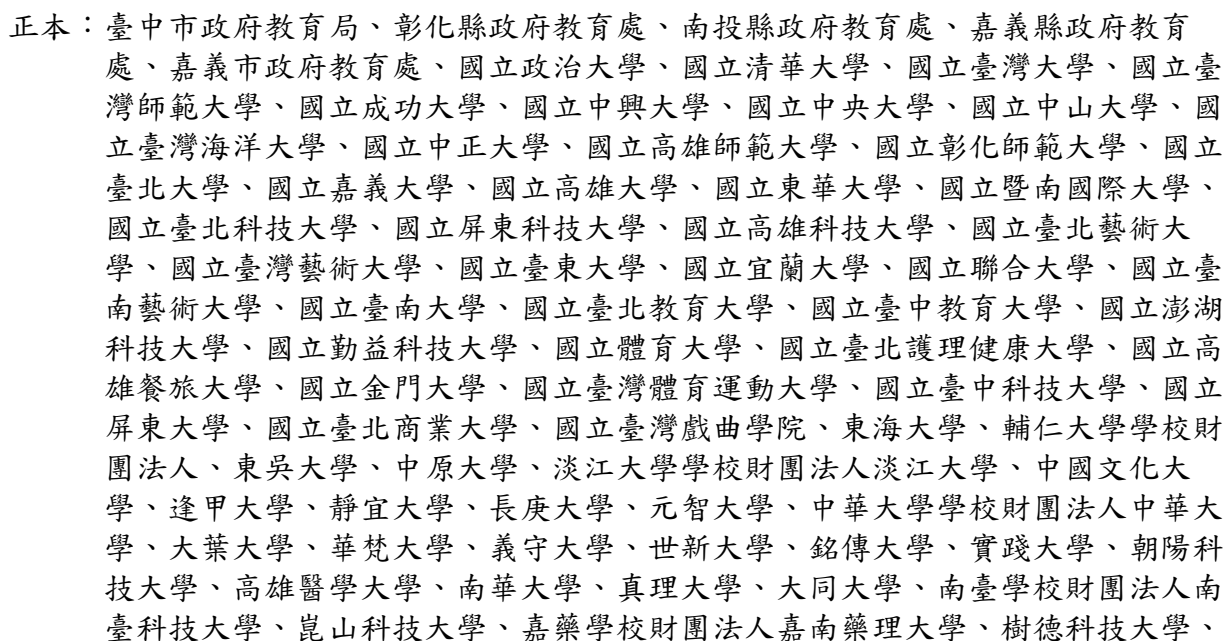 正本：臺中市政府教育局、彰化縣政府教育處、南投縣政府教育處、嘉義縣政府教育
處、嘉義市政府教育處、國立政治大學、國立清華大學、國立臺灣大學、國立臺
灣師範大學、國立成功大學、國立中興大學、國立中央大學、國立中山大學、國
立臺灣海洋大學、國立中正大學、國立高雄師範大學、國立彰化師範大學、國立
臺北大學、國立嘉義大學、國立高雄大學、國立東華大學、國立暨南國際大學、
國立臺北科技大學、國立屏東科技大學、國立高雄科技大學、國立臺北藝術大
學、國立臺灣藝術大學、國立臺東大學、國立宜蘭大學、國立聯合大學、國立臺
南藝術大學、國立臺南大學、國立臺北教育大學、國立臺中教育大學、國立澎湖
科技大學、國立勤益科技大學、國立體育大學、國立臺北護理健康大學、國立高
雄餐旅大學、國立金門大學、國立臺灣體育運動大學、國立臺中科技大學、國立
屏東大學、國立臺北商業大學、國立臺灣戲曲學院、東海大學、輔仁大學學校財
團法人、東吳大學、中原大學、淡江大學學校財團法人淡江大學、中國文化大
學、逢甲大學、靜宜大學、長庚大學、元智大學、中華大學學校財團法人中華大
學、大葉大學、華梵大學、義守大學、世新大學、銘傳大學、實踐大學、朝陽科
技大學、高雄醫學大學、南華大學、真理大學、大同大學、南臺學校財團法人南
臺科技大學、崑山科技大學、嘉藥學校財團法人嘉南藥理大學、樹德科技大學、